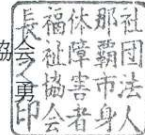 社団法人
那覇市身
体障害者
福祉協会
長之印
協会 勇